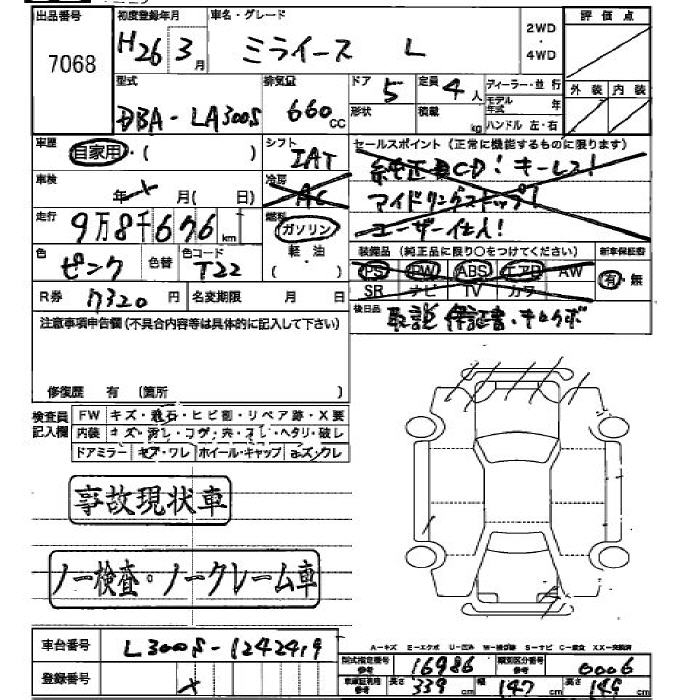 出品番号 初度登録年月 車名・グレード 2WD ・ 4WD 評価点
7068 H26 3月 ミライース L
外装 内装
型式 排気量 ドア 定員 ディーラー・並行
DBA-LA300S 660cc 5 4人 モデル年式 年
形状 積載 kg ハンドル 左・右
車歴 自家用・( ) シフト IAT セールスポイント(正常に機能するものに限ります)
純正CD!キーレス!
車検 年 x 月( 日) 冷房 AC アイドリングストップ!
走行 9万8千676km 燃料 ガソリン ユーザー仕入!
軽・油 ( ) 装備品(純正品に限り○をつけてください) 新車保証書
色 ピンク 色替 色コード T22 PS PW ABS エアB AW 有・無
SR ナビ TV カワ
R券 7320円 名変期限 月 日 後日品 取説 保証書・
注意事項申告欄(不具合内容等は具体的に記入して下さい)
修復歴 有(箇所 )
検査員記入欄 FW キズ・飛石・ヒビ割・リペア跡・X要
内装 キズ・汚レ・コゲ・穴・スレ・ヘタリ・破レ
ドアミラー キズ・ワレ ホイール・キャップ キズ・ワレ
事故現状車
ノー検査・ノークレーム車
A-キズ E-エクボ U-凹み W-補修跡 S-サビ C-腐食 XX-交換済
車台番号 LA300S-1242419
型式指定番号 参考 16986 類別区分番号 参考 0006
登録番号 x
車検証有用 参考 長さ 339cm 幅 147cm 高さ 149cm